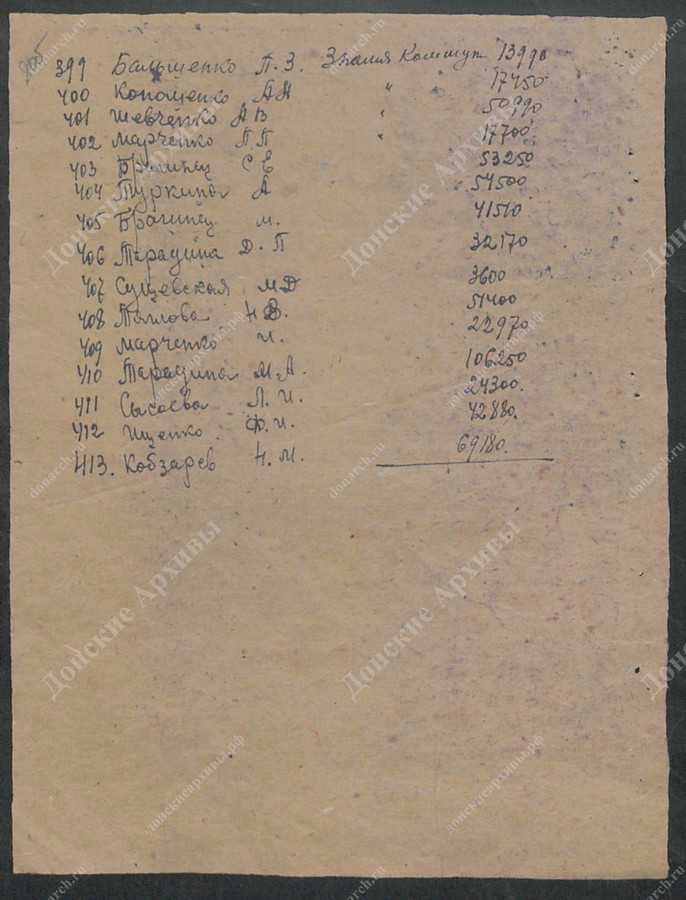 399 Бальщенко П. З. Знамя Коммун 13990
400 Конощенко А Н " 17450
401 Шевченко А В " 50990
402 Марченко П П " 17700
403 Брагинец С Е 53250
404 Туркина А 54500
405 Брагинец М. 41510
406 Тарадина Д. П 32170
407 Сущевская М Д 3600
408 Н В. 51400
409 Марченко И. 22970
410 Тарадина М. А. 106250
411 Сысоева Л. И. 24300.
412 Ищенко Ф. И. 42880.
413. Кобзарев Н. М. 69180.
Донские Архивы
donarch.ru
донскиеархивы.рф